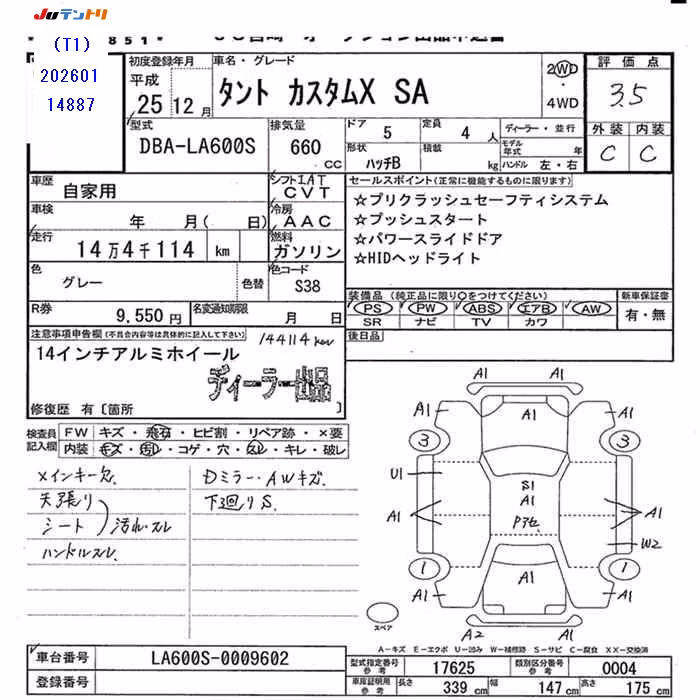 JUテントリ
(T1)
202601
14887
初度登録年月
平成
25年12月
車名・グレード
タント カスタムX SA
2WD
・
4WD
評価点
3.5
外装 内装
C C
型式
DBA-LA600S
排気量
660 CC
ドア 5
定員 4 人
形状 ハッチB
積載 kg
ディーラー・並行
モデル年式 年
ハンドル 左・右
車歴
自家用
シフト IAT
CVT
車検
年 月( 日)
冷房
AAC
走行
14万4千114 km
燃料
ガソリン
色
グレー
色替
色コード
S38
R券
9,550円
名変通知期限
月 日
セールスポイント(正常に機能するものに限ります)
☆プリクラッシュセーフティシステム
☆プッシュスタート
☆パワースライドドア
☆HIDヘッドライト
装備品 (純正品に限り○をつけてください)
PS PW ABS エアB AW
SR ナビ TV カワ
新車保証書
有・無
後日品
注意事項申告欄(不具合内容等は具体的に記入して下さい)
144114km
14インチアルミホイール
ディーラー出品
修復歴 有〔箇所 〕
検査員記入欄
FW キズ・飛石・ヒビ割・リペア跡・×要
内装 キズ・汚れ・コゲ・穴・スレ・キレ・破レ
×インキー欠
天張り
シート
汚れ・スレ
ハンドルスレ
Dミラー・AWキズ
下回りS
A1
A1 A1 A1
3 3
U1
S1
A1
A1 A1
W2
1 1
A1 A1 A1
A2 A1
スペア
A-キズ E-エクボ U-凹み W-補修跡 S-サビ C-腐食 XX-交換済
車台番号 LA600S-0009602
登録番号
型式指定番号 参考 17625
類別区分番号 参考 0004
車庫証明用 参考 長さ 339 cm 幅 147 cm 高さ 175 cm